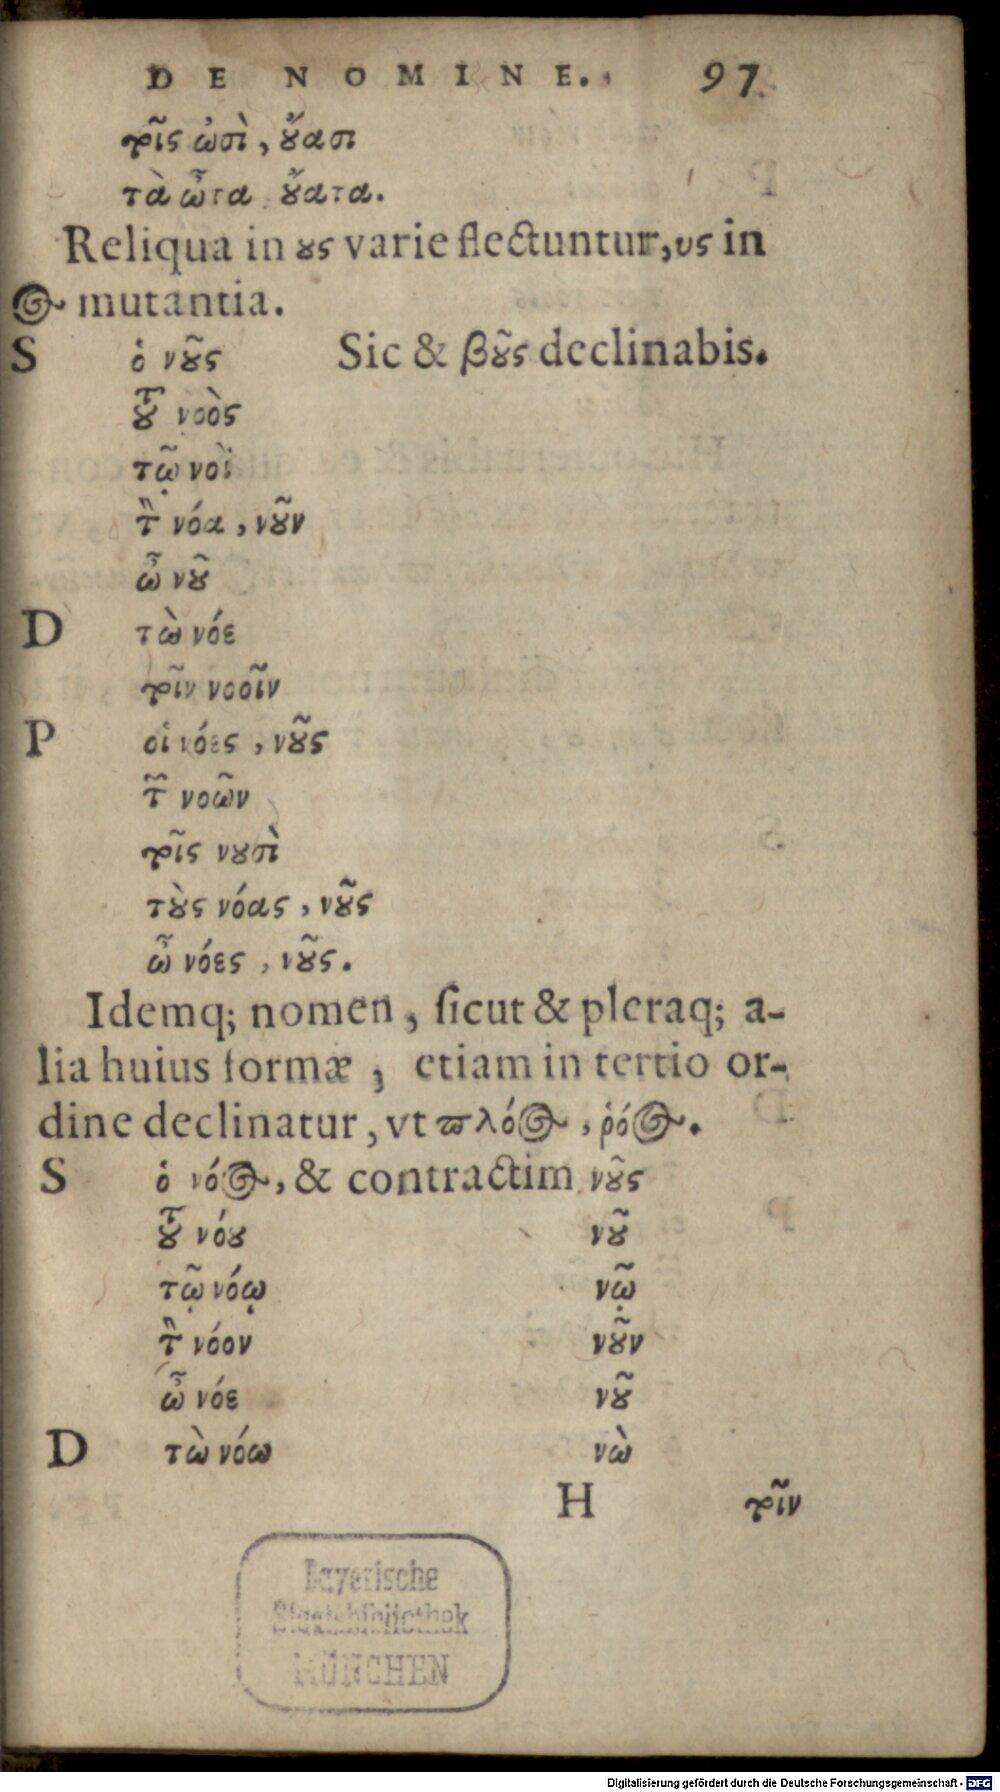 DE NOMINE. 97
τοῖς ὠσὶ, ȣ̓́ασι
τὰ ὦτα ȣ̓́ατα.
Reliqua in ȣς varie flectuntur, υς in
ος mutantia.
S ὁ νȣ͂ς Sic & βȣ͂ς declinabis.
τȣ͂ νοὸς
τῷ νοῒ
τὸν νόα, νȣ͂ν
ὦ νȣ͂
D τὼ νόε
τοῖν νοοῖν
P οἱ νόες, νȣ͂ς
τῶν νοῶν
τοῖς νȣσὶ
τȣ̀ς νόας, νȣ͂ς
ὦ νόες, νȣ͂ς.
Idemq; nomen, ſicut & pleraq; a-
lia huius formæ, etiam in tertio or-
dine declinatur, vt ϖλόος, ῥόος.
S ὁ νόος, & contractim νȣ͂ς
τȣ͂ νόȣ νȣ͂
τῷ νόῳ νῷ
τὸν νόον νȣ͂ν
ὦ νόε νȣ͂
D τὼ νόω νὼ
H τοῖν
Bayerische
Staatsbibliothek
MÜNCHEN
Digitalisierung gefördert durch die Deutsche Forschungsgemeinschaft - DFG